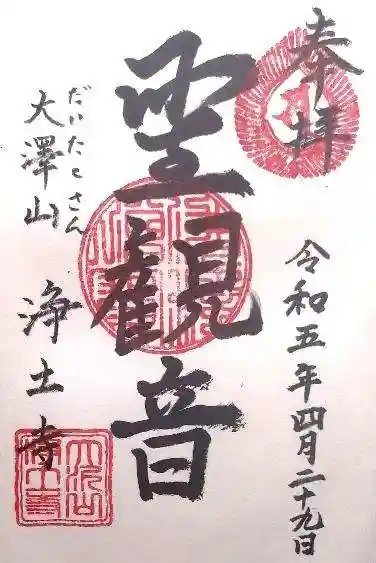 奉拝
令和五年四月二十九日
聖観音
だいたくさん
大澤山 浄土寺